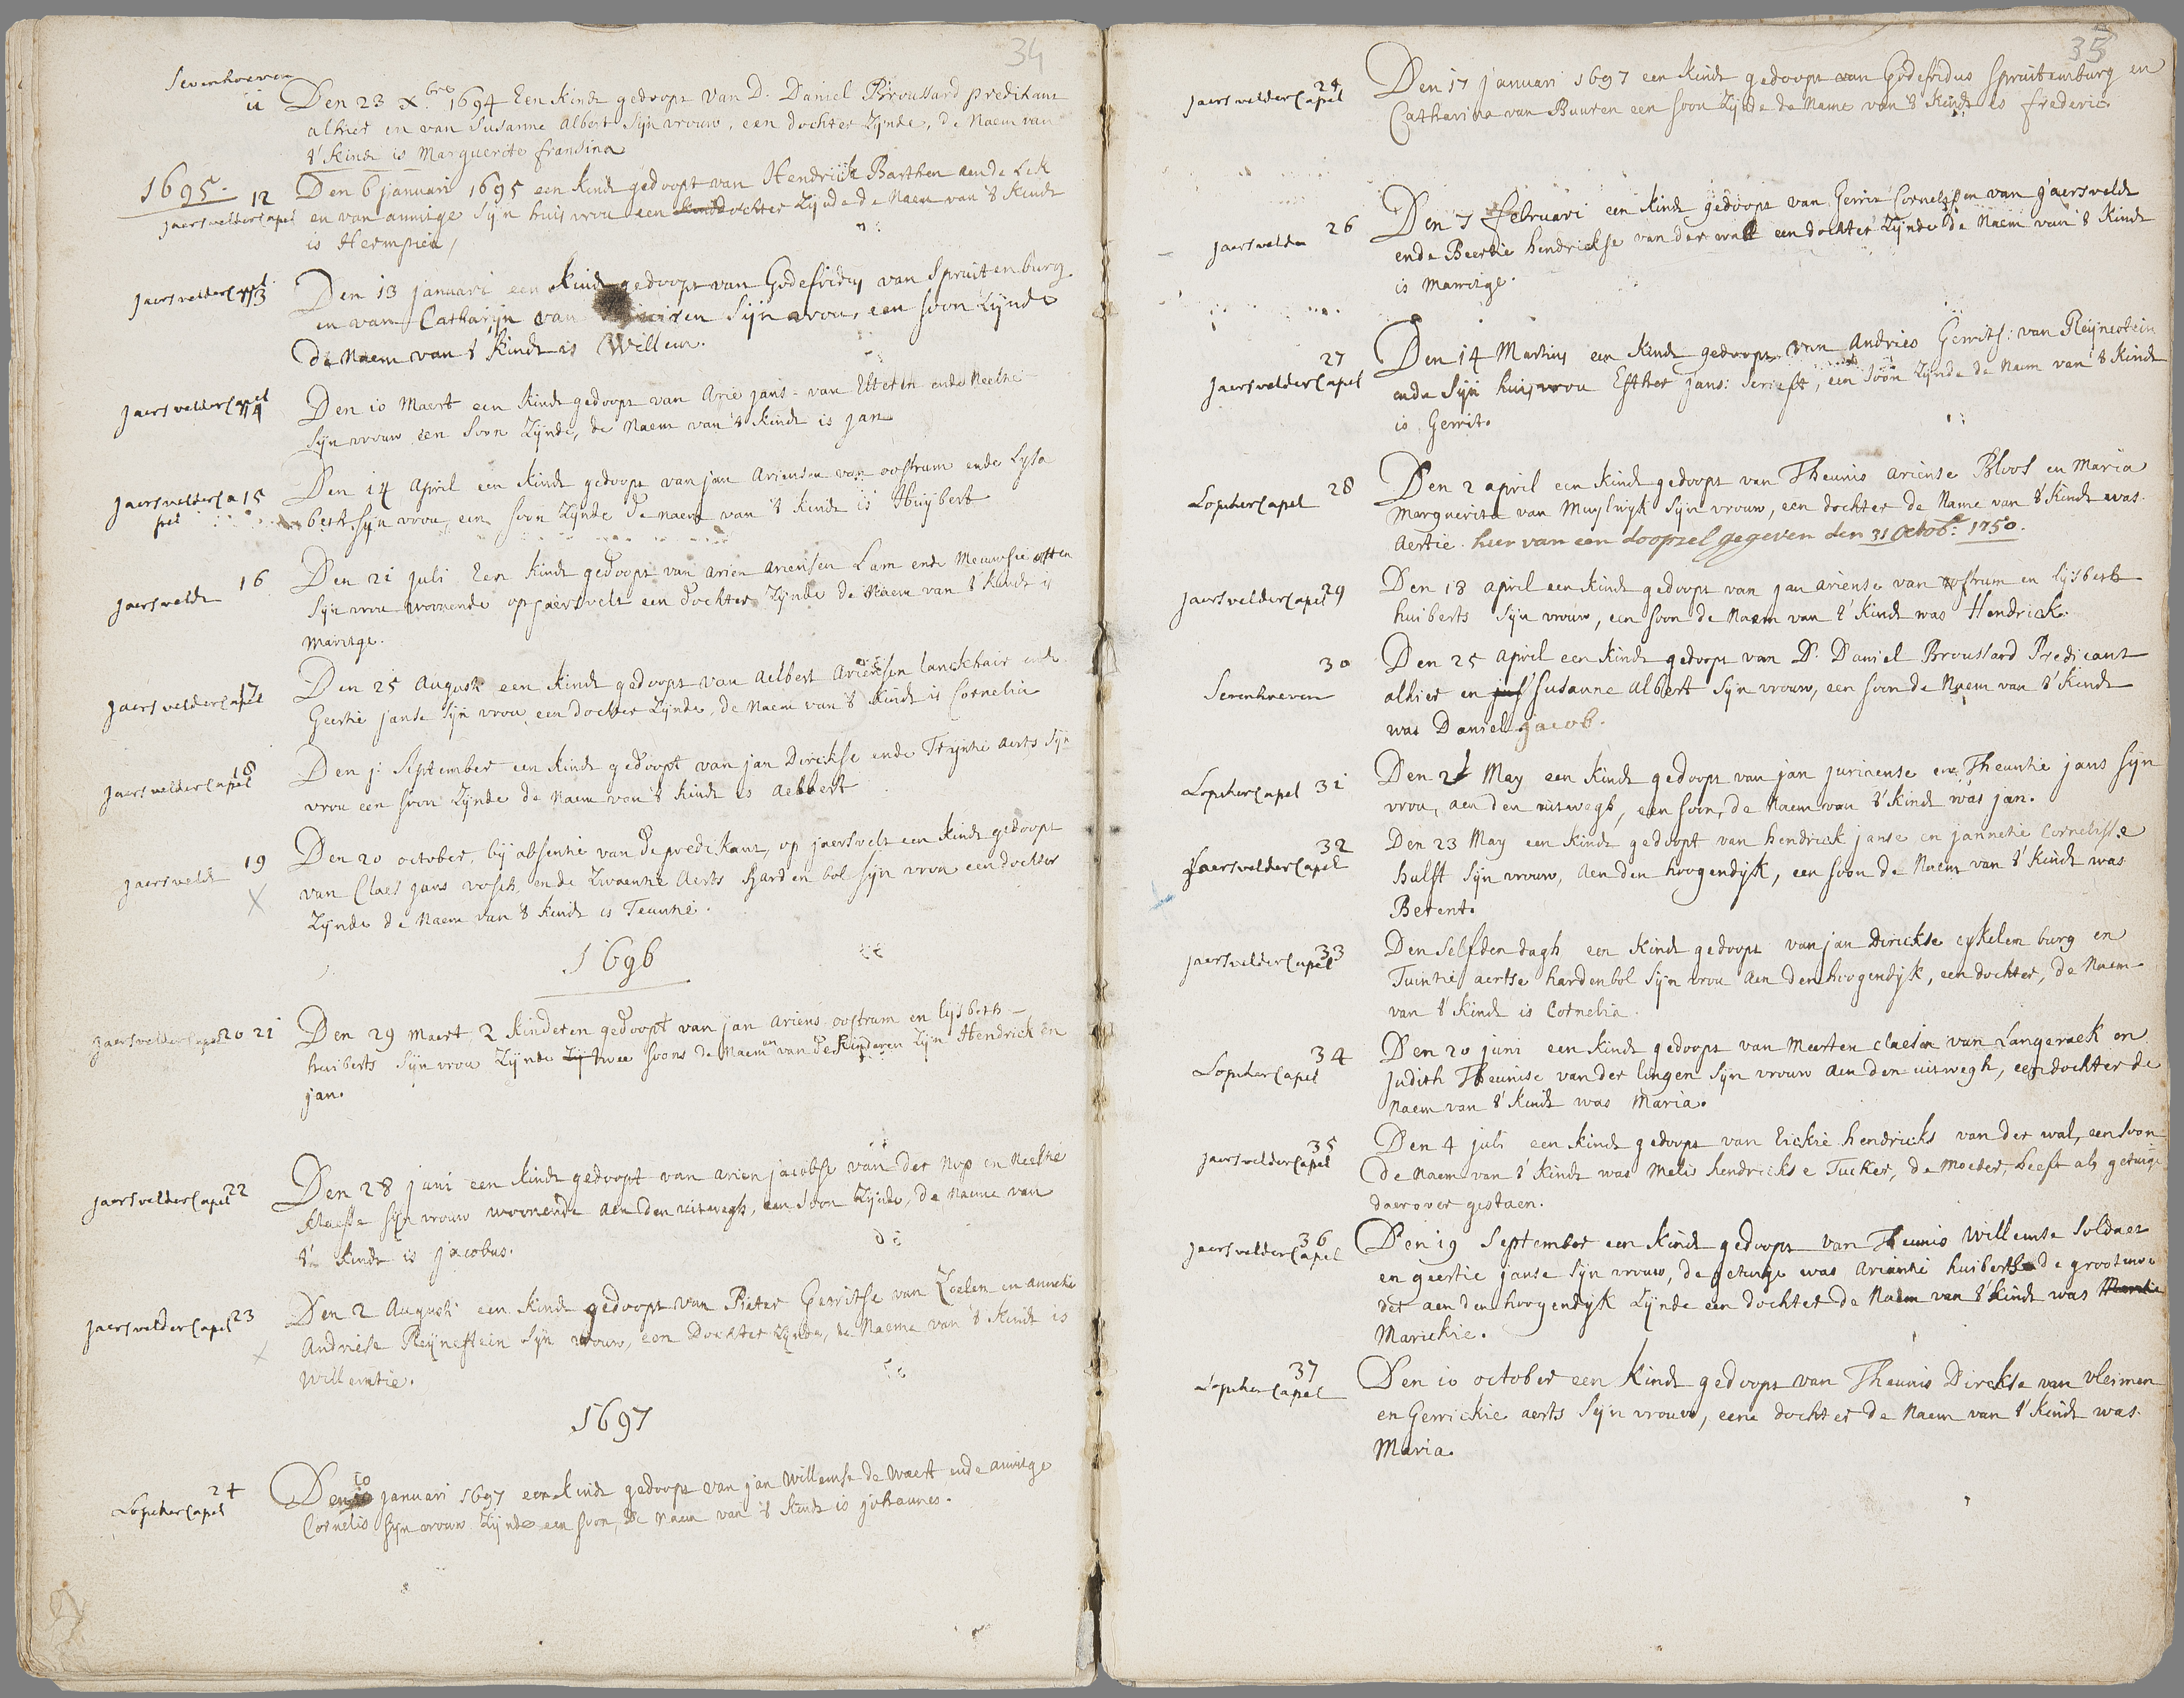 34
Sevenhoeven
11 Den 23 Xbre 1694 Een kindt gedoopt van D. Daniel Broussard predikant
alhier en van Susanne Albert Sijn vrouw, een dochter Zijnde, de Naem van
't kindt is Marguerite fransina
1695.
Jaersvelder Capel 12 Den 6 januari 1695 een kindt gedoopt van Hendrick Barthen aende Lek
en van annitge Sijn huisvrou een dochter Zijnde de Naem van 't kindt
is Hermpien,
Jaersvelder Capel 13 Den 13 januari een kindt gedoopt van Godefridus van Spruitenburg
en van Catharijn van Sijn vrou, een soon Zijnde
de Naem van 't kindt is Willem.
Jaersvelder Capel 14 Den 10 Maert een kindt gedoopt van Arie jans: van ende Neeltie
Sijn vrouw een soon Zijnde, de Naem van 't kindt is jan
Jaersvelder Ca 15 Den 14 April een kindt gedoopt van jan Ariensen van oostrum ende Lysa
pel beth sijn vrou, een soon Zijnde de naem van 't kindt is Huijbert
Jaersveldt 16 Den 21 juli Een kindt gedoopt van Arien Ariensen Lam ende Meuwsie
Sijn vrou woonende op jaersvelt een dochter Zijnde de Naem van 't kindt is
Marritge.
Jaersvelder Capel 17 Den 25 August een kindt gedoopt van Aelbert Ariensen lanckhair ende
Geertie janse Sijn vrou een dochter Zijnde, de Naem van 't kindt is Cornelia
Jaersvelder Capel 18 Den j: September een kindt gedoopt van jan Dirckse ende Trijntie Aerts Sijn
vrou een soon Zijnde de Naem van 't kindt is Aelbert
Jaersveldt 19 Den 20 october, bij absentie van de predikant, op jaersvelt een kindt gedoopt
van Claes jans vosch, ende Zwaentie Aerts Harden bol sijn vrou een dochter
Zijnde de Naem van 't kindt is Teuntie.
1696
Jaersvelder Capel 20 21 Den 29 Maert 2 kinderen gedoopt van jan Ariens oostrum en lijsbeth
huiberts Sijn vrou Zijnde twee soons de Naemen van de kinderen Zijn Hendrick en
jan.
Jaersvelder Capel 22 Den 28 juni een kindt gedoopt van Arien jacobse van der Nop en Neeltie
Klaesse sijn vrouw woonende aen den uitwegh, een soon Zijnde, de Naeme van
't kindt is jacobus.
Jaersvelder Capel 23 Den 2 Augusti een kindt gedoopt van Pieter Gerritse van Zoelen en anneke
Andriese Reijnestein Sijn vrouw, een Dochter Zijnde, de Naeme van 't kindt is
Willemtie.
1697
Lopicker Capel 24 Den 10 januari 1697 een kindt gedoopt van jan Willemse de Waert ende annitge
Cornelis Sijn vrouw Zijnde een soon, de Naem van 't kindt is johannes.
35
Jaersvelder Capel 24 Den 17 januari 1697 een kindt gedoopt van Godefridus Spruitemburg en
Catharina van Buuren een soon Zijnde de Name van 't kindt is frederic.
Jaersvelden 26 Den 7 februari een kindt gedoopt van Gerrit Cornelissen van Jaersveldt
ende Beertie hendrickse van der wall een dochter Zijnde de Naem van 't kindt
is Marritge.
Jaersvelder Capel 27 Den 14 Martius een kindt gedoopt van Andries Gerrits: van Reijnestein
ende Sijn huisvrou Esther Jans: een soon Zijnde de Naem van 't kindt
is Gerrit.
Lopicker Capel 28 Den 2 april een kindt gedoopt van Theunis ariense Bloot en Maria
Marguerita van Muylwyk Sijn vrouw, een dochter de Name van 't kindt was
Aertie. hier van een doopzel gegeven den 31 Octob: 1750.
Jaersvelder Capel 29 Den 18 april een kindt gedoopt van jan ariense van oostrum en lijsbeth
huiberts Sijn vrouw, een soon de Naem van 't kindt was Hendrick.
Sevenhoeven 30 Den 25 April een kindt gedoopt van D. Daniel Broussard Predicant
alhier en Susanne Albert Sijn vrouw, een soon de Naem van 't kindt
was Daniel jacob.
Lopicker Capel 31 Den 2 May een kindt gedoopt van jan juriaense en Theuntie jans Sijn
vrou, aen den uitwegh, een soon, de Naem van 't kindt was jan.
Jaersvelder Capel 32 Den 23 May een kindt gedoopt van hendrick janse en jannetie Cornelisse
hulst Sijn vrouw, aen den hoogendijk, een soon de Naem van 't kindt was
Berent.
Jaersvelder Capel 33 Den Selfden dagh een kindt gedoopt van jan Dirickse eykelenburg en
Tuintie aertse hardenbol Sijn vrou aen den hoogendyk, een dochter, de Naem
van 't kindt is Cornelia.
Lopicker Capel 34 Den 20 juni een kindt gedoopt van Meerten claesen van Langeraek en
Judith Theunise van der lingen Sijn vrouw aen den uitwegh, een dochter de
Naem van 't kindt was Maria.
Jaersvelder Capel 35 Den 4 juli een kindt gedoopt van Eickie hendricks van der wal, een soon
de Naem van 't kindt was Melis hendrickse Tucker, de moeder heeft als getuige
daer over gestaen.
Jaersvelder Capel 36 Den 19 September een kindt gedoopt van Theunis Willemse Soldaet
en geertie janse Sijn vrouw, de getuige was Ariantie huiberts de grootmoe
der aen den hoogendyk Zijnde een dochter de Naem van 't kindt was
Marickie.
Lopicker Capel 37 Den 10 october een kindt gedoopt van Theunis Dirckse van vleimen
en Gerrickie aerts Sijn vrouw, eene dochter de Naem van 't kindt was
Maria.